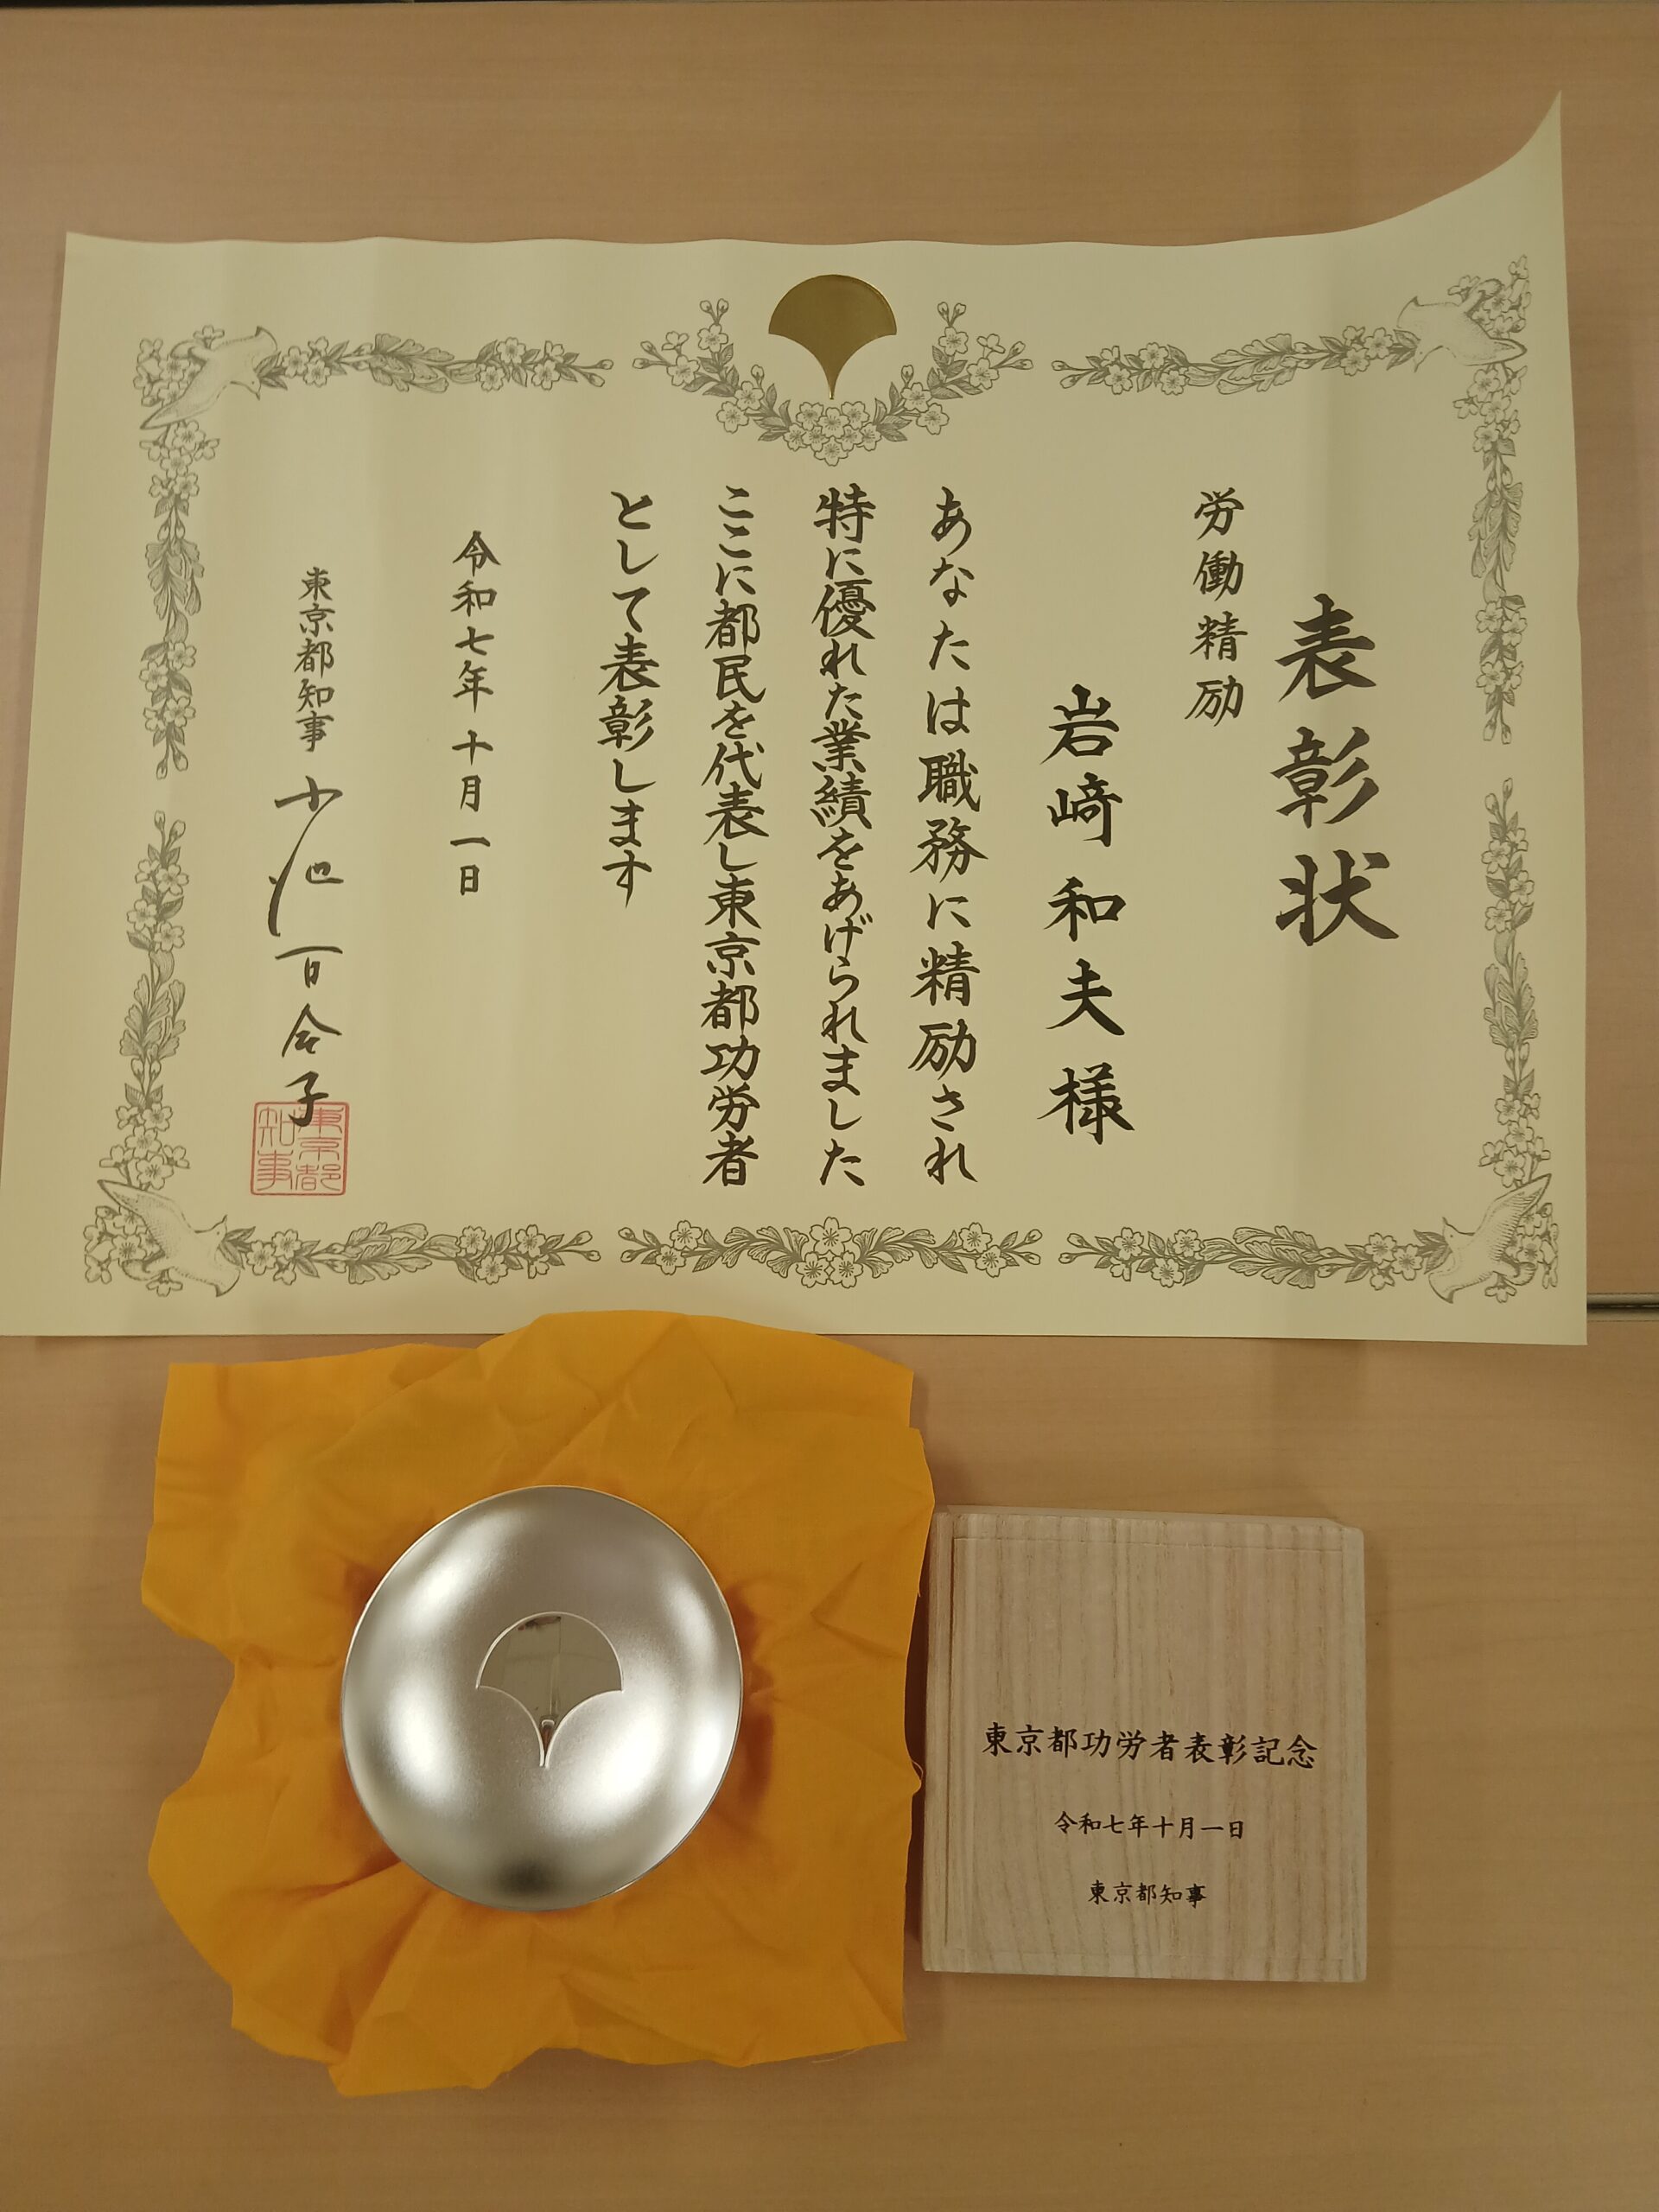 表彰状
労働精励
岩﨑和夫様
あなたは職務に精励され
特に優れた業績をあげられました
ここに都民を代表し東京都功労者
として表彰します
令和七年十月一日
東京都知事 小池百合子
東京都
知事
東京都功労者表彰記念
令和七年十月一日
東京都知事